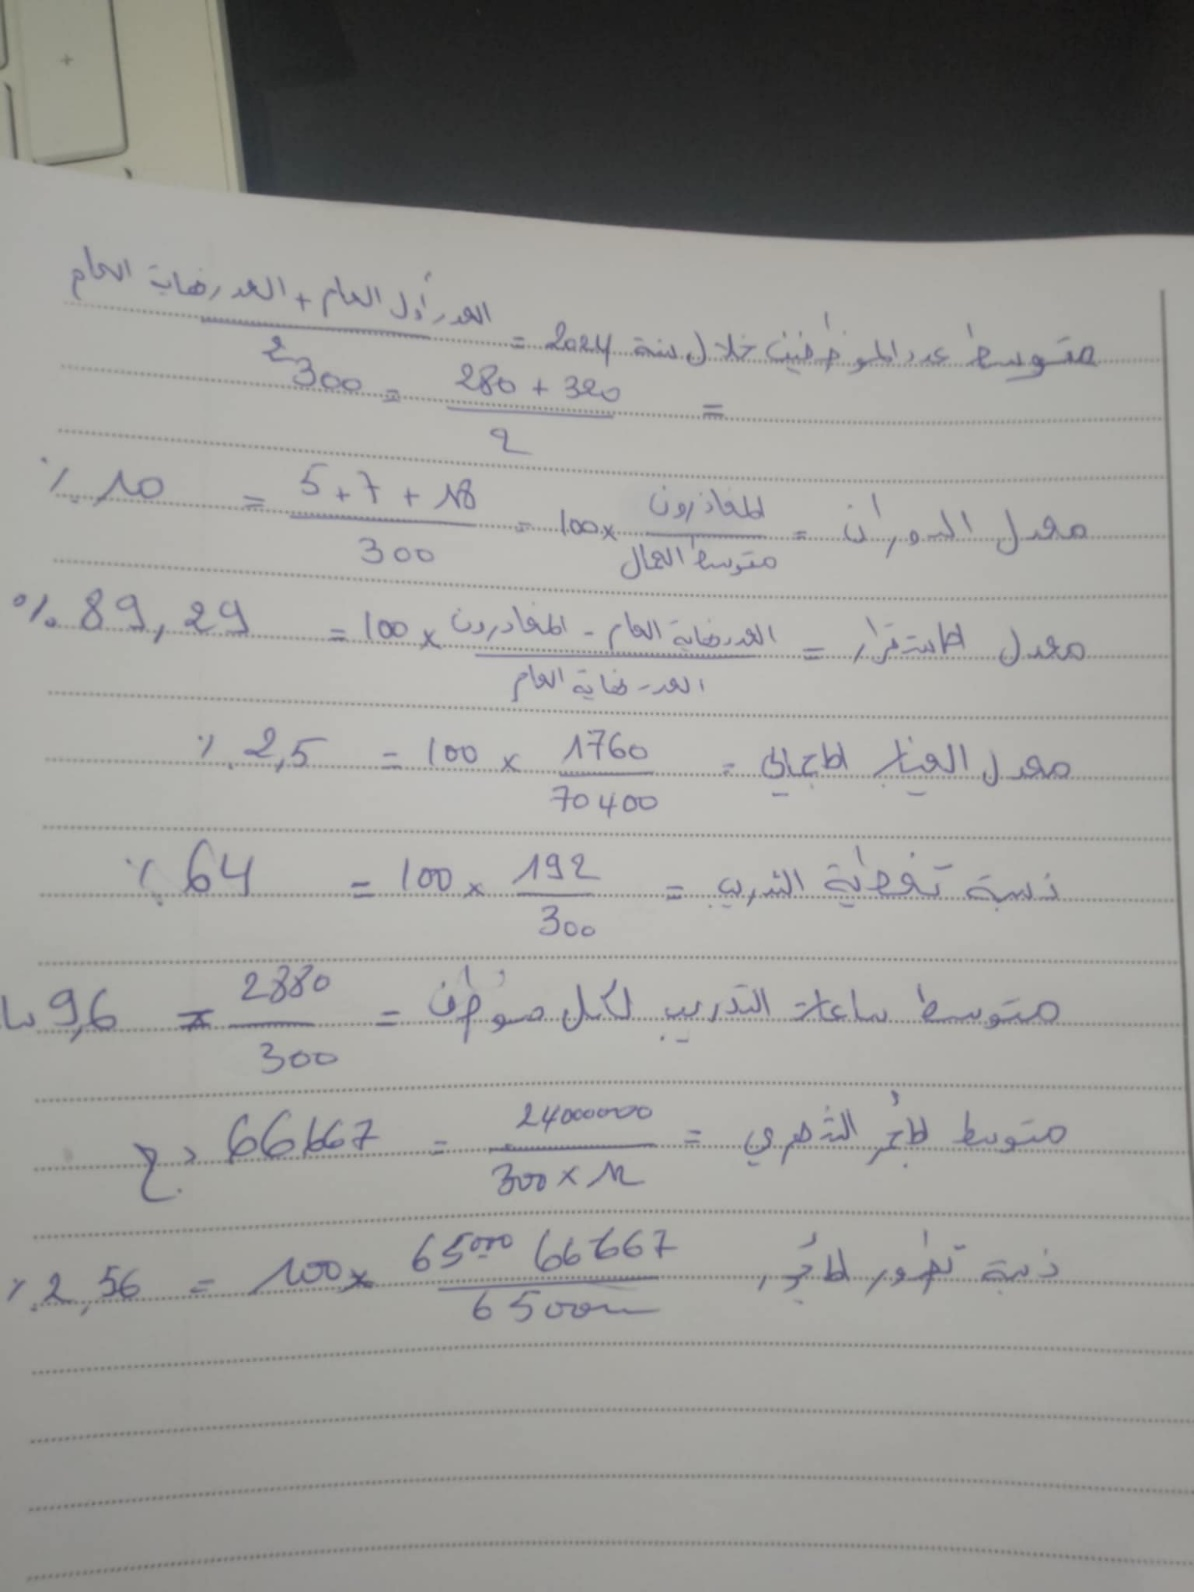 متوسط عدد الموظفين خلال سنة 2024 = العدد أول العام + العدد نهاية العام / 2
= 280 + 320 / 2 = 300
معدل الدوران = المغادرون / متوسط العمال × 100 = 5 + 7 + 18 / 300 = 10 %
معدل الاستقرار = العدد نهاية العام - المغادرون / العدد نهاية العام × 100 = 89,29 %
معدل الغياب الاجمالي = 1760 / 70400 × 100 = 2,5 %
نسبة تغطية التدريب = 192 / 300 × 100 = 64 %
متوسط ساعات التدريب لكل موظف = 2880 / 300 = 9,6 سا
متوسط الأجر الشهري = 24000000 / 300 × 12 = 66667 دج
نسبة تطور الأجر 65000 66667 / 65000 × 100 = 2,56 %